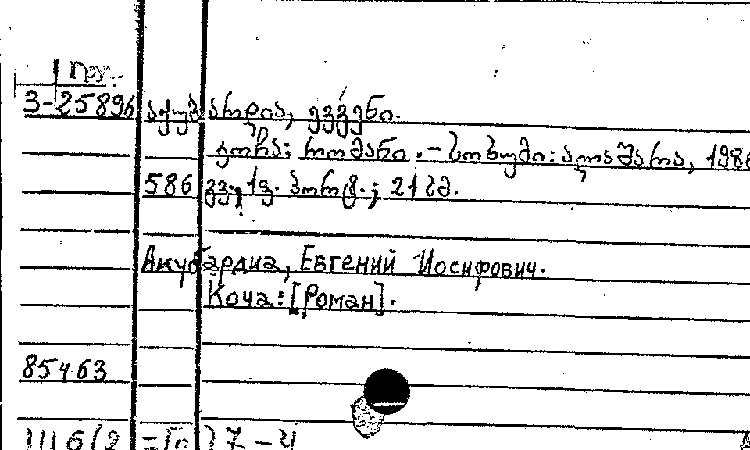 3-25896 აქუბარდია, ევგენი.
კოჩა: რომანი. - სოხუმი: ალაშარა, 1986
586 გვ., 1 ფ. პორტ.; 21 სმ.
Акубардиа, Евгений Иосифович.
Коча: [Роман].
85463